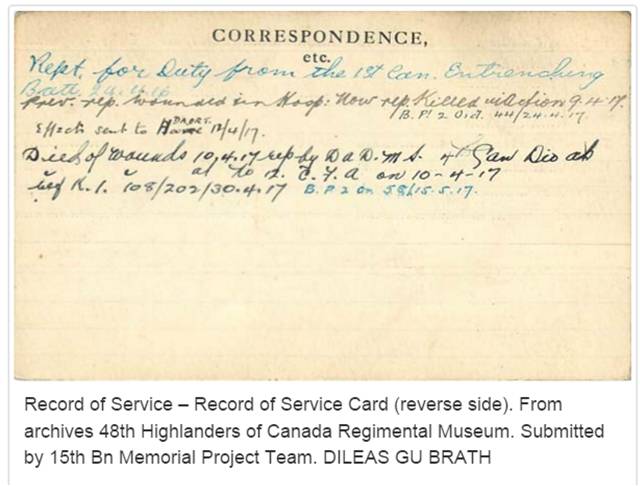 CORRESPONDENCE,
etc.
Rept. for Duty from the 1st Can. Entrenching
Batt. 29.4.16
Prev. rep. wounded in Hosp: Now rep. Killed in Action 9.4.17.
B.P! 2 Ord. 44/24.4.17
Effects sent to 12/4/17.
Died of wounds 10.4.17 rep by D a D. M S. 4th Can Div ab
at No 12. C. F. A on 10-4-17
K. I. 108/202/30.4.17 B. P 2 On 58/15.5.17.
Record of Service – Record of Service Card (reverse side). From
archives 48th Highlanders of Canada Regimental Museum. Submitted
by 15th Bn Memorial Project Team. DILEAS GU BRATH